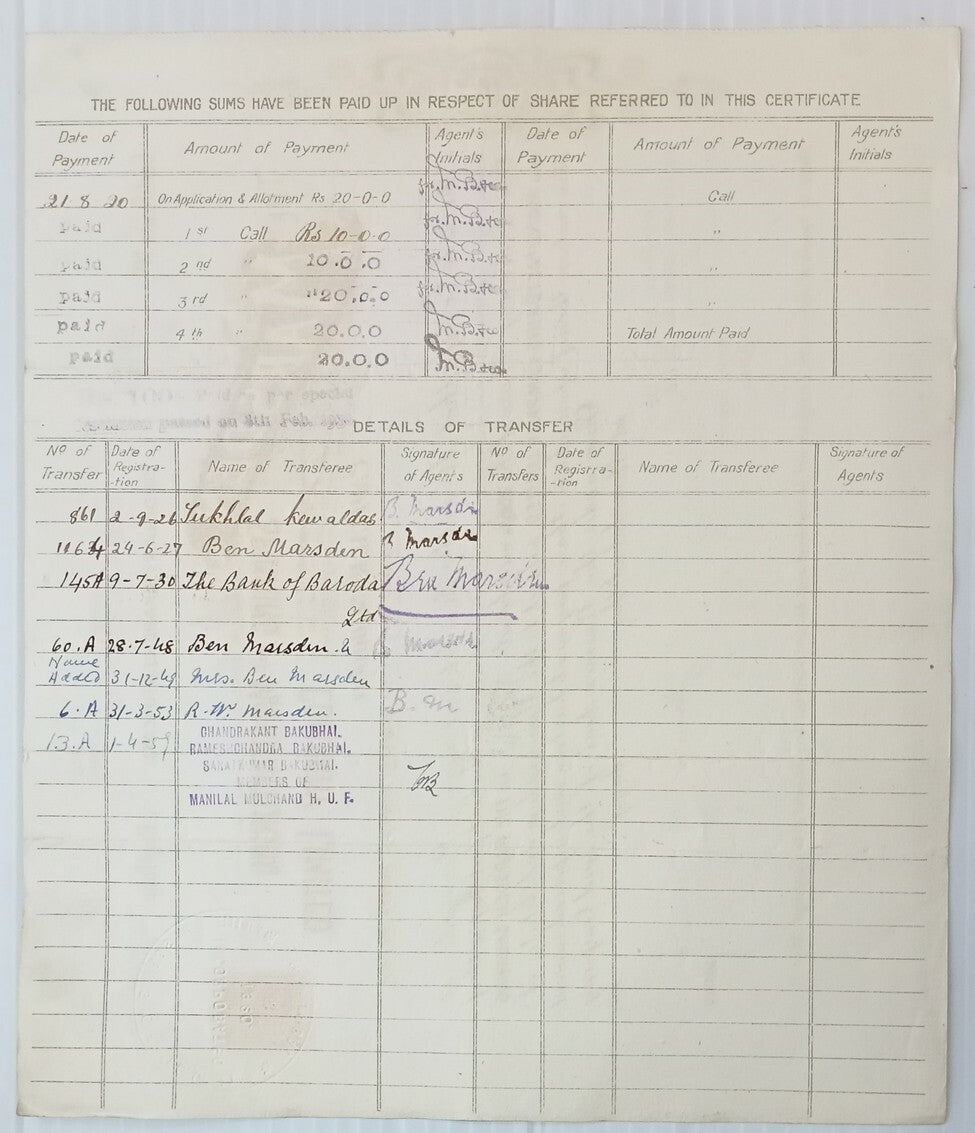 THE FOLLOWING SUMS HAVE BEEN PAID UP IN RESPECT OF SHARE REFERRED TO IN THIS CERTIFICATE
Date of Payment Amount of Payment Agent's Initials Date of Payment Amount of Payment Agent's Initials
21 8 20 On Application & Allotment Rs 20-0-0 Call
paid 1st Call Rs 10-0-0 "
paid 2nd " 10.0.0 "
paid 3rd " "20.0.0 "
paid 4th " 20.0.0 Total Amount Paid
paid 20.0.0
per special
passed on 8th Feb.
DETAILS OF TRANSFER
No of Transfer Date of Registra-tion Name of Transferee Signature of Agents No of Transfers Date of Registra-tion Name of Transferee Signature of Agents
861 2-9-26 kewaldas B. Marsden
24-6-27 Ben Marsden B Marsden
145A 9-7-30 The Bank of Baroda Ben Marsden
Ltd
60.A 28.7.48 Ben Marsden & B Marsden
Name
Added 31-12-49 Mrs. Ben Marsden
6.A 31-3-53 R.W. Marsden. B. M
13.A 1-4-59 CHANDRAKANT BAKUBHAI.
RAMESHCHANDRA BAKUBHAI.
SARATKUMAR BAKUBHAI.
MEMBERS OF
MANILAL MULCHAND H. U. F.